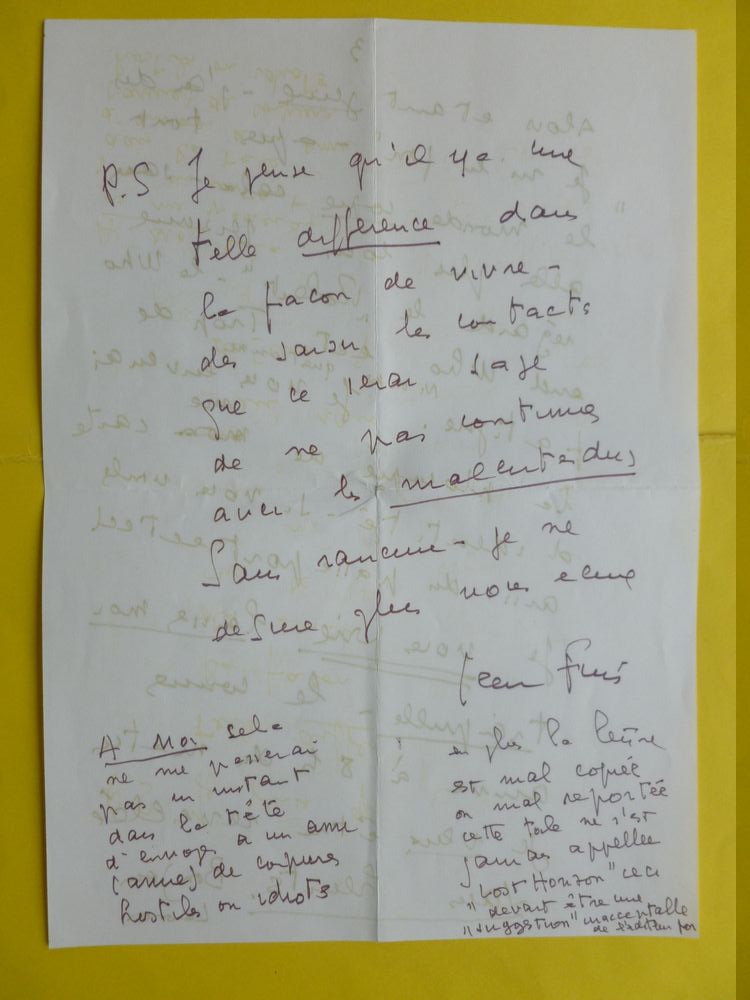 P.S Je pense qu'il y a une
telle difference dans
la façon de vivre -
des les contacts
que ce serai sage
de ne pas continuer
avec les malentendus
Sans rancune - je ne
desire plus vous
A Moi sela
ne me passerai
pas un instant
dans la tête
d'envoyer a un ami
(amie) de coupures
hostiles ou idiots
en plus la lettre
est mal copiée
ou mal reportée
cette toile ne s'est
jamais appellée
"Lost Horizon" ceci
"devait être une
"suggestion" inacceptable
de l'editeur